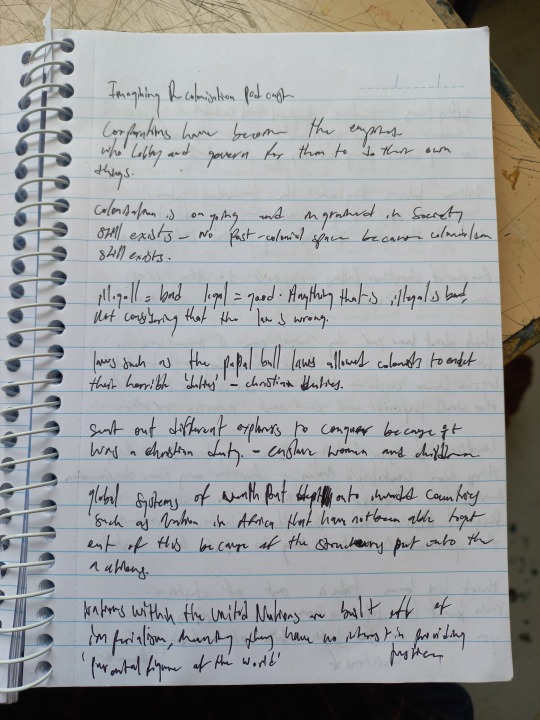 Imagining Decolonisation Podcast
Corporations have become the empires
who lobby and govern for them to do their own
things.
Colonialism is ongoing and ingrained in Society
still exists - No Post-colonial space because colonialism
still exists.
illegal = bad legal = good. Anything that is illegal is bad,
not considering that the law is wrong.
laws such as the papal bull laws allowed colonists to enact
their horrible 'duties' - christian duties.
Sent out different explorers to conquer because it
was a christian duty. - enslave women and children
global systems of wealth put onto invaded countries
such as nation in Africa that have not been able to get
out of this because of the put onto the
nations.
Nations within the United Nations are built off of
imperialism, meaning they have no interest in providing
justice
'parental figure of the world'